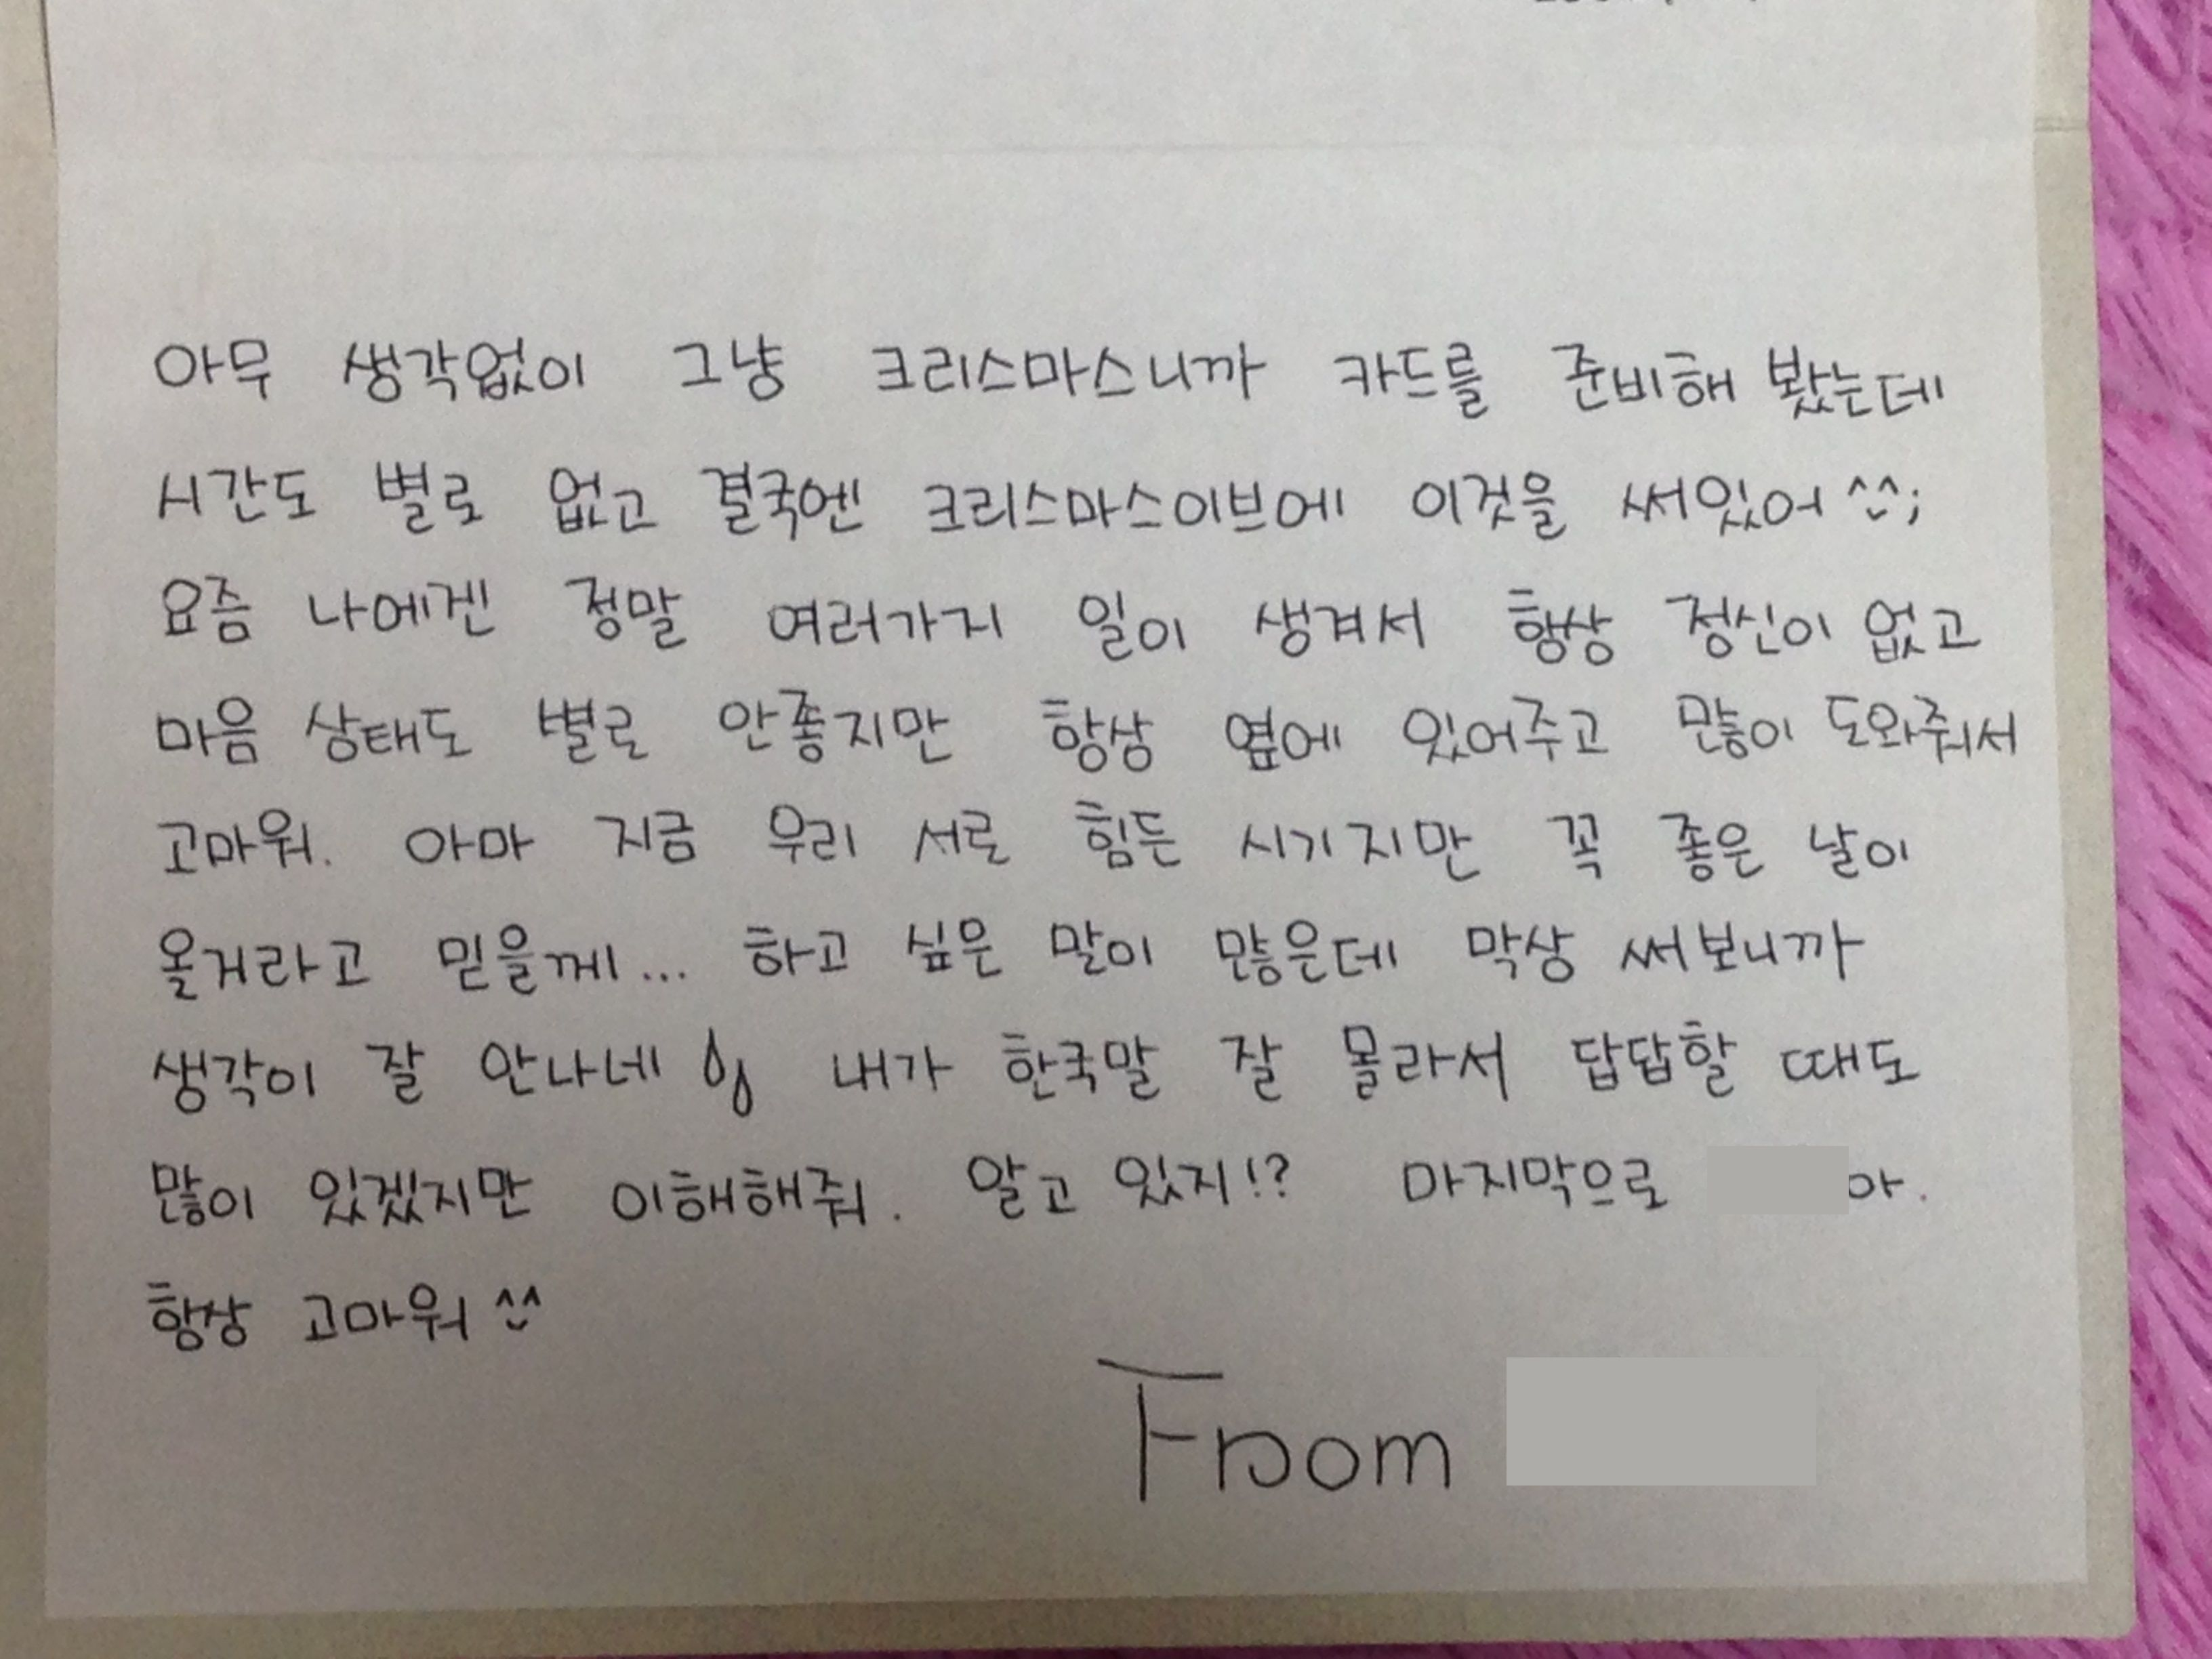 아무 생각없이 그냥 크리스마스니까 카드를 준비해 봤는데
시간도 별로 없고 결국엔 크리스마스이브에 이것을 써있어 ^^;
요즘 나에겐 정말 여러가지 일이 생겨서 항상 정신이 없고
마음 상태도 별로 안좋지만 항상 옆에 있어주고 많이 도와줘서
고마워. 아마 지금 우리 서로 힘든 시기지만 꼭 좋은 날이
올거라고 믿을께... 하고 싶은 말이 많은데 막상 써보니까
생각이 잘 안나네 내가 한국말 잘 몰라서 답답할 때도
많이 있겠지만 이해해줘. 알고 있지!? 마지막으로 아.
항상 고마워 ^^
From